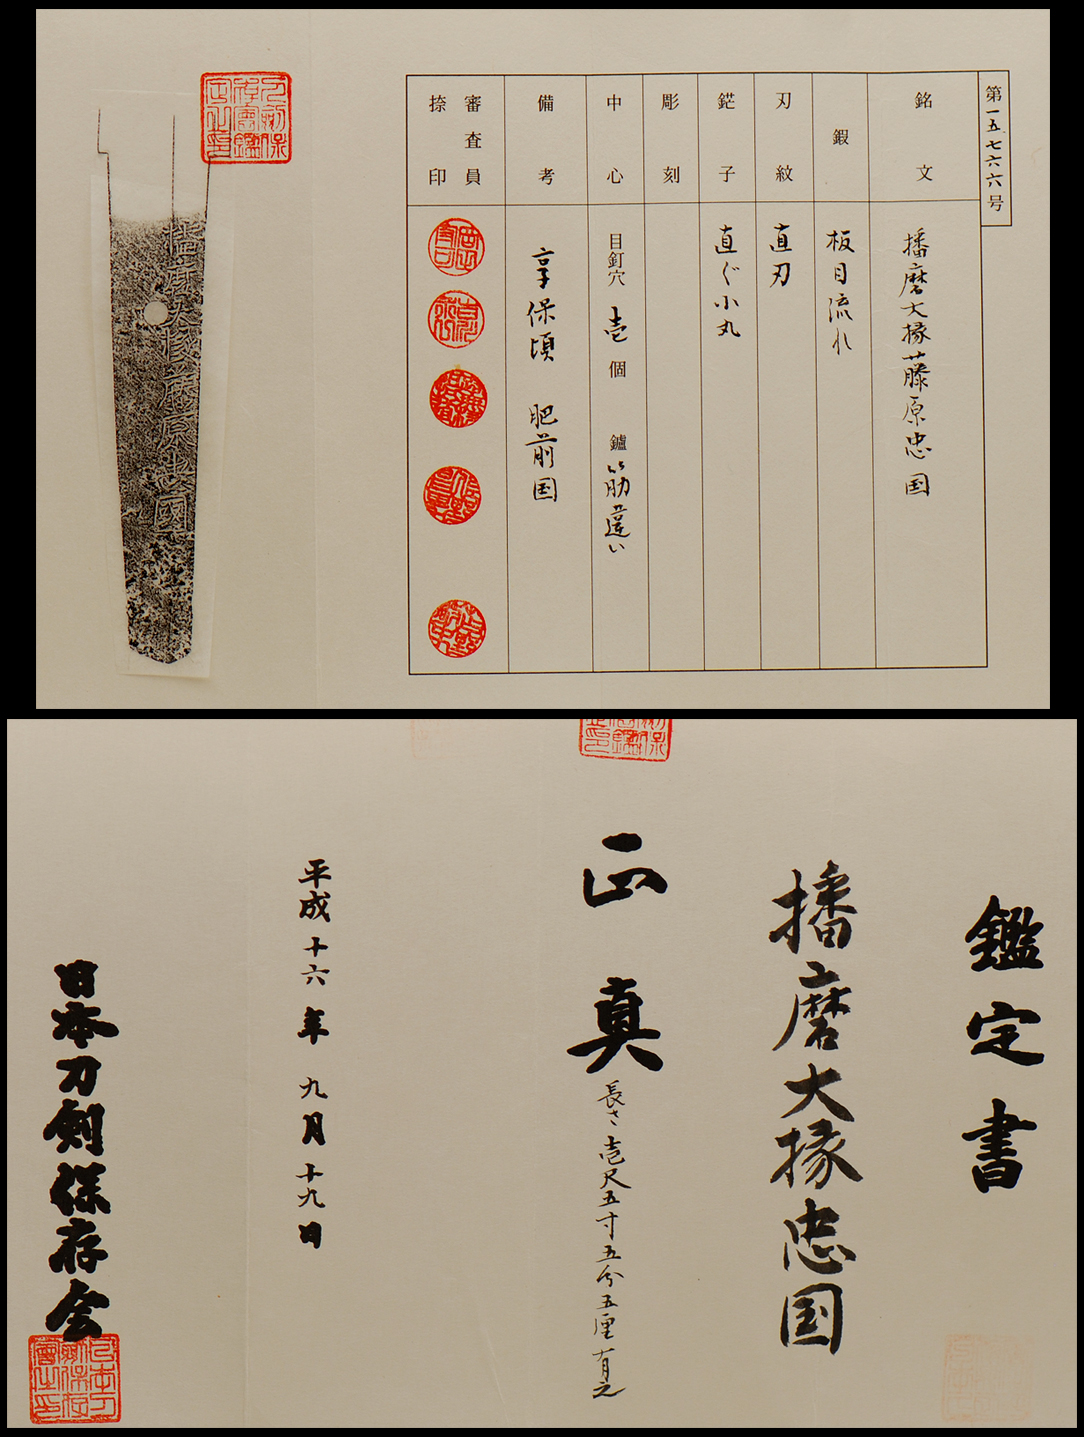 第一五七六六号
銘文
播磨大掾藤原忠国
鍜
板目流れ
刃紋
直刃
鋩子
直ぐ小丸
彫刻
中心
目釘穴 壱 個 鑢 筋違い
備考
享保頃 肥前国
審査員
捺印
播磨大掾藤原忠國
鑑定書
播磨大掾忠国
正真
長さ壱尺五寸五分五厘有之
平成十六年 九月十九日
日本刀剣保存会